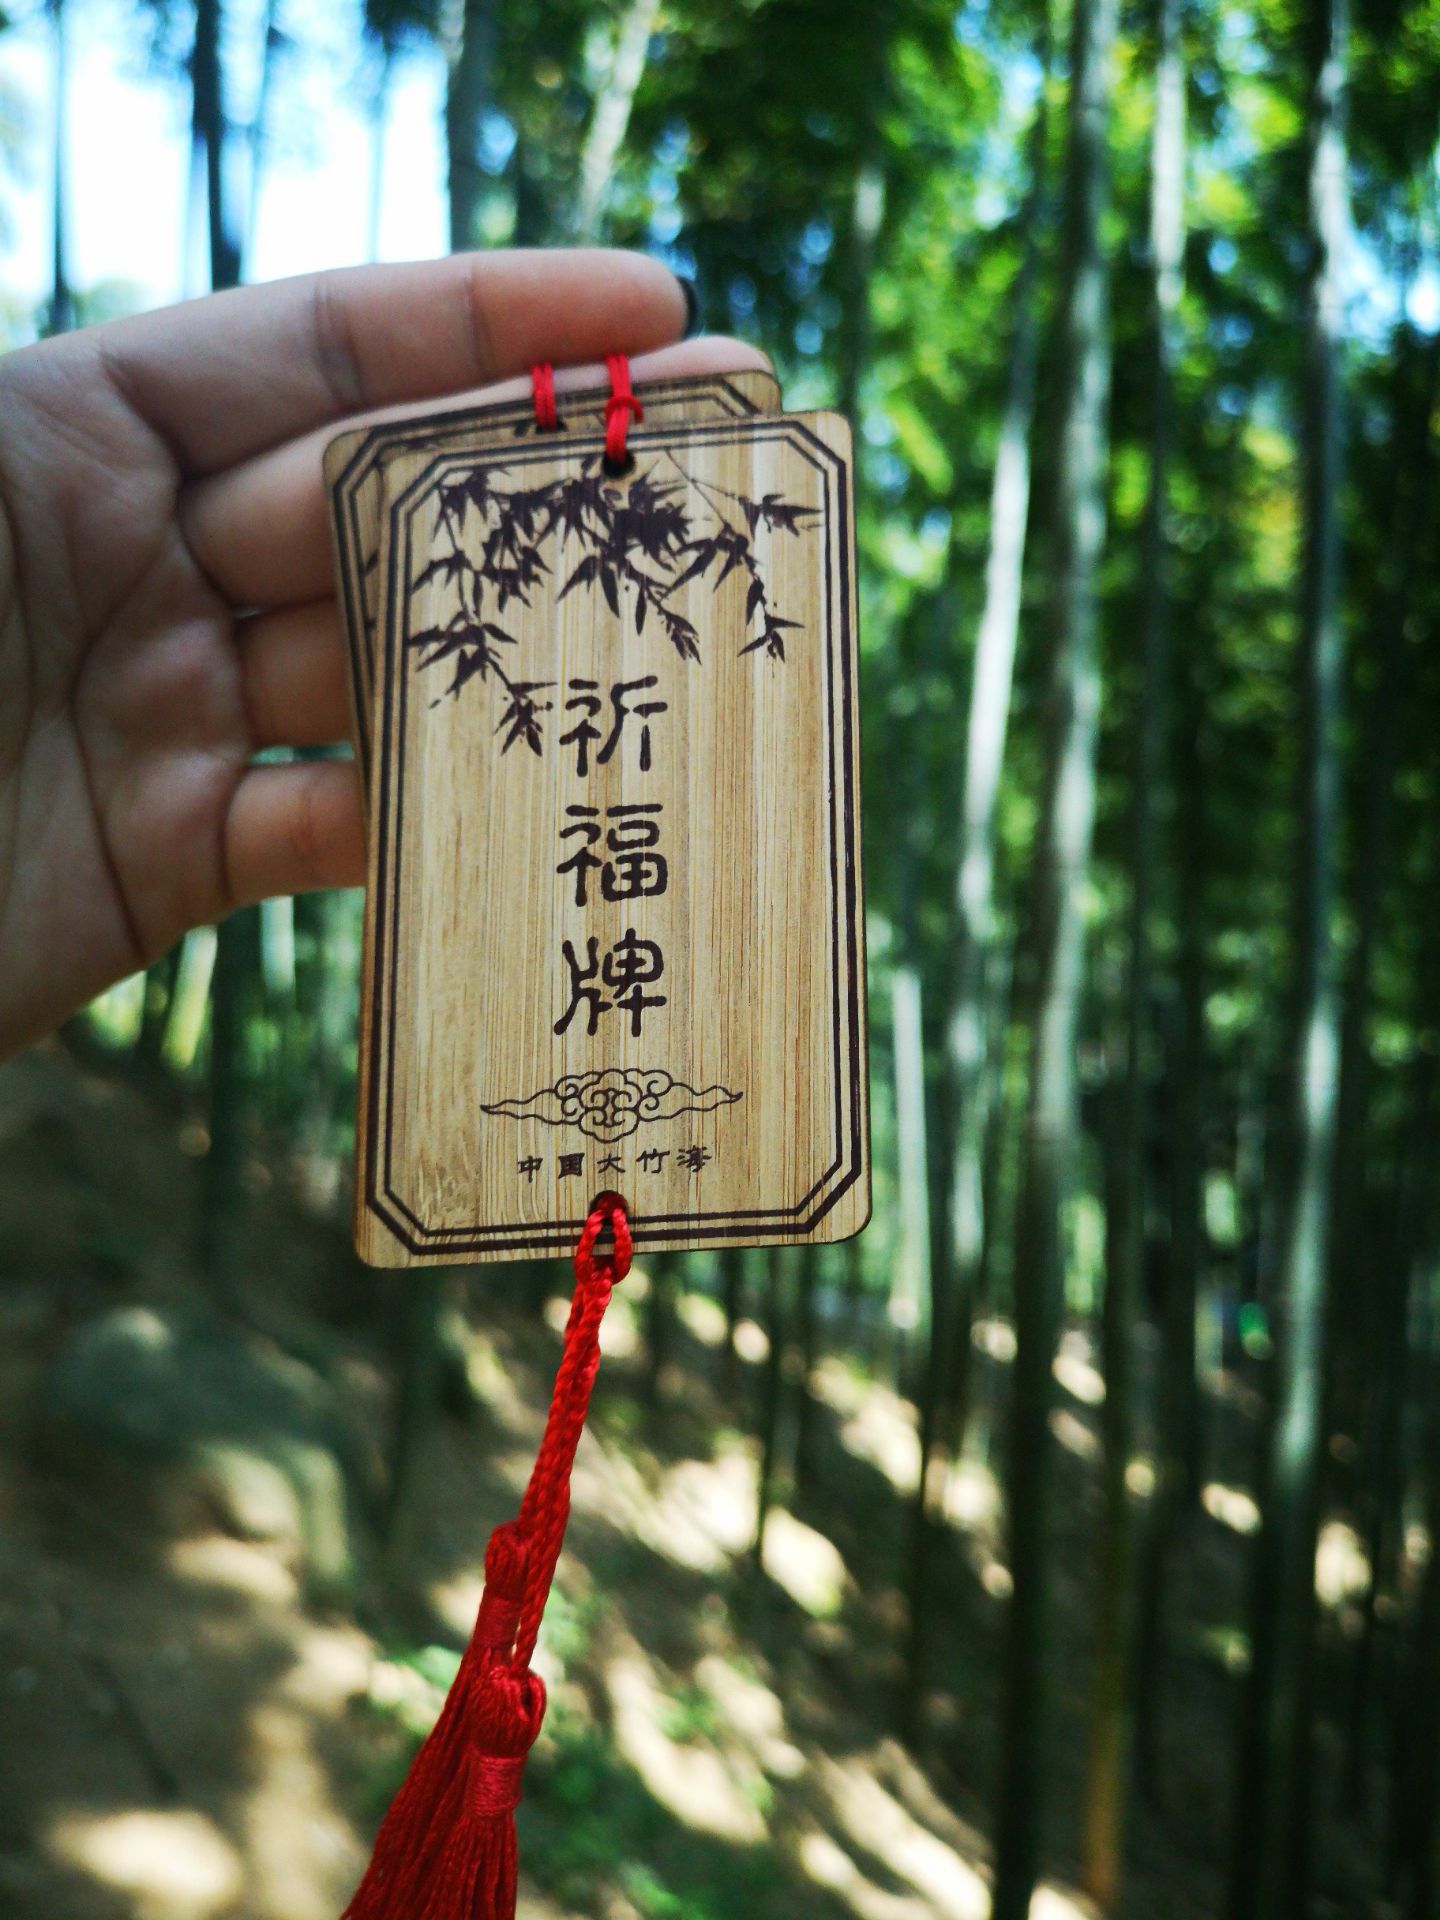 祈福牌
中国大竹海